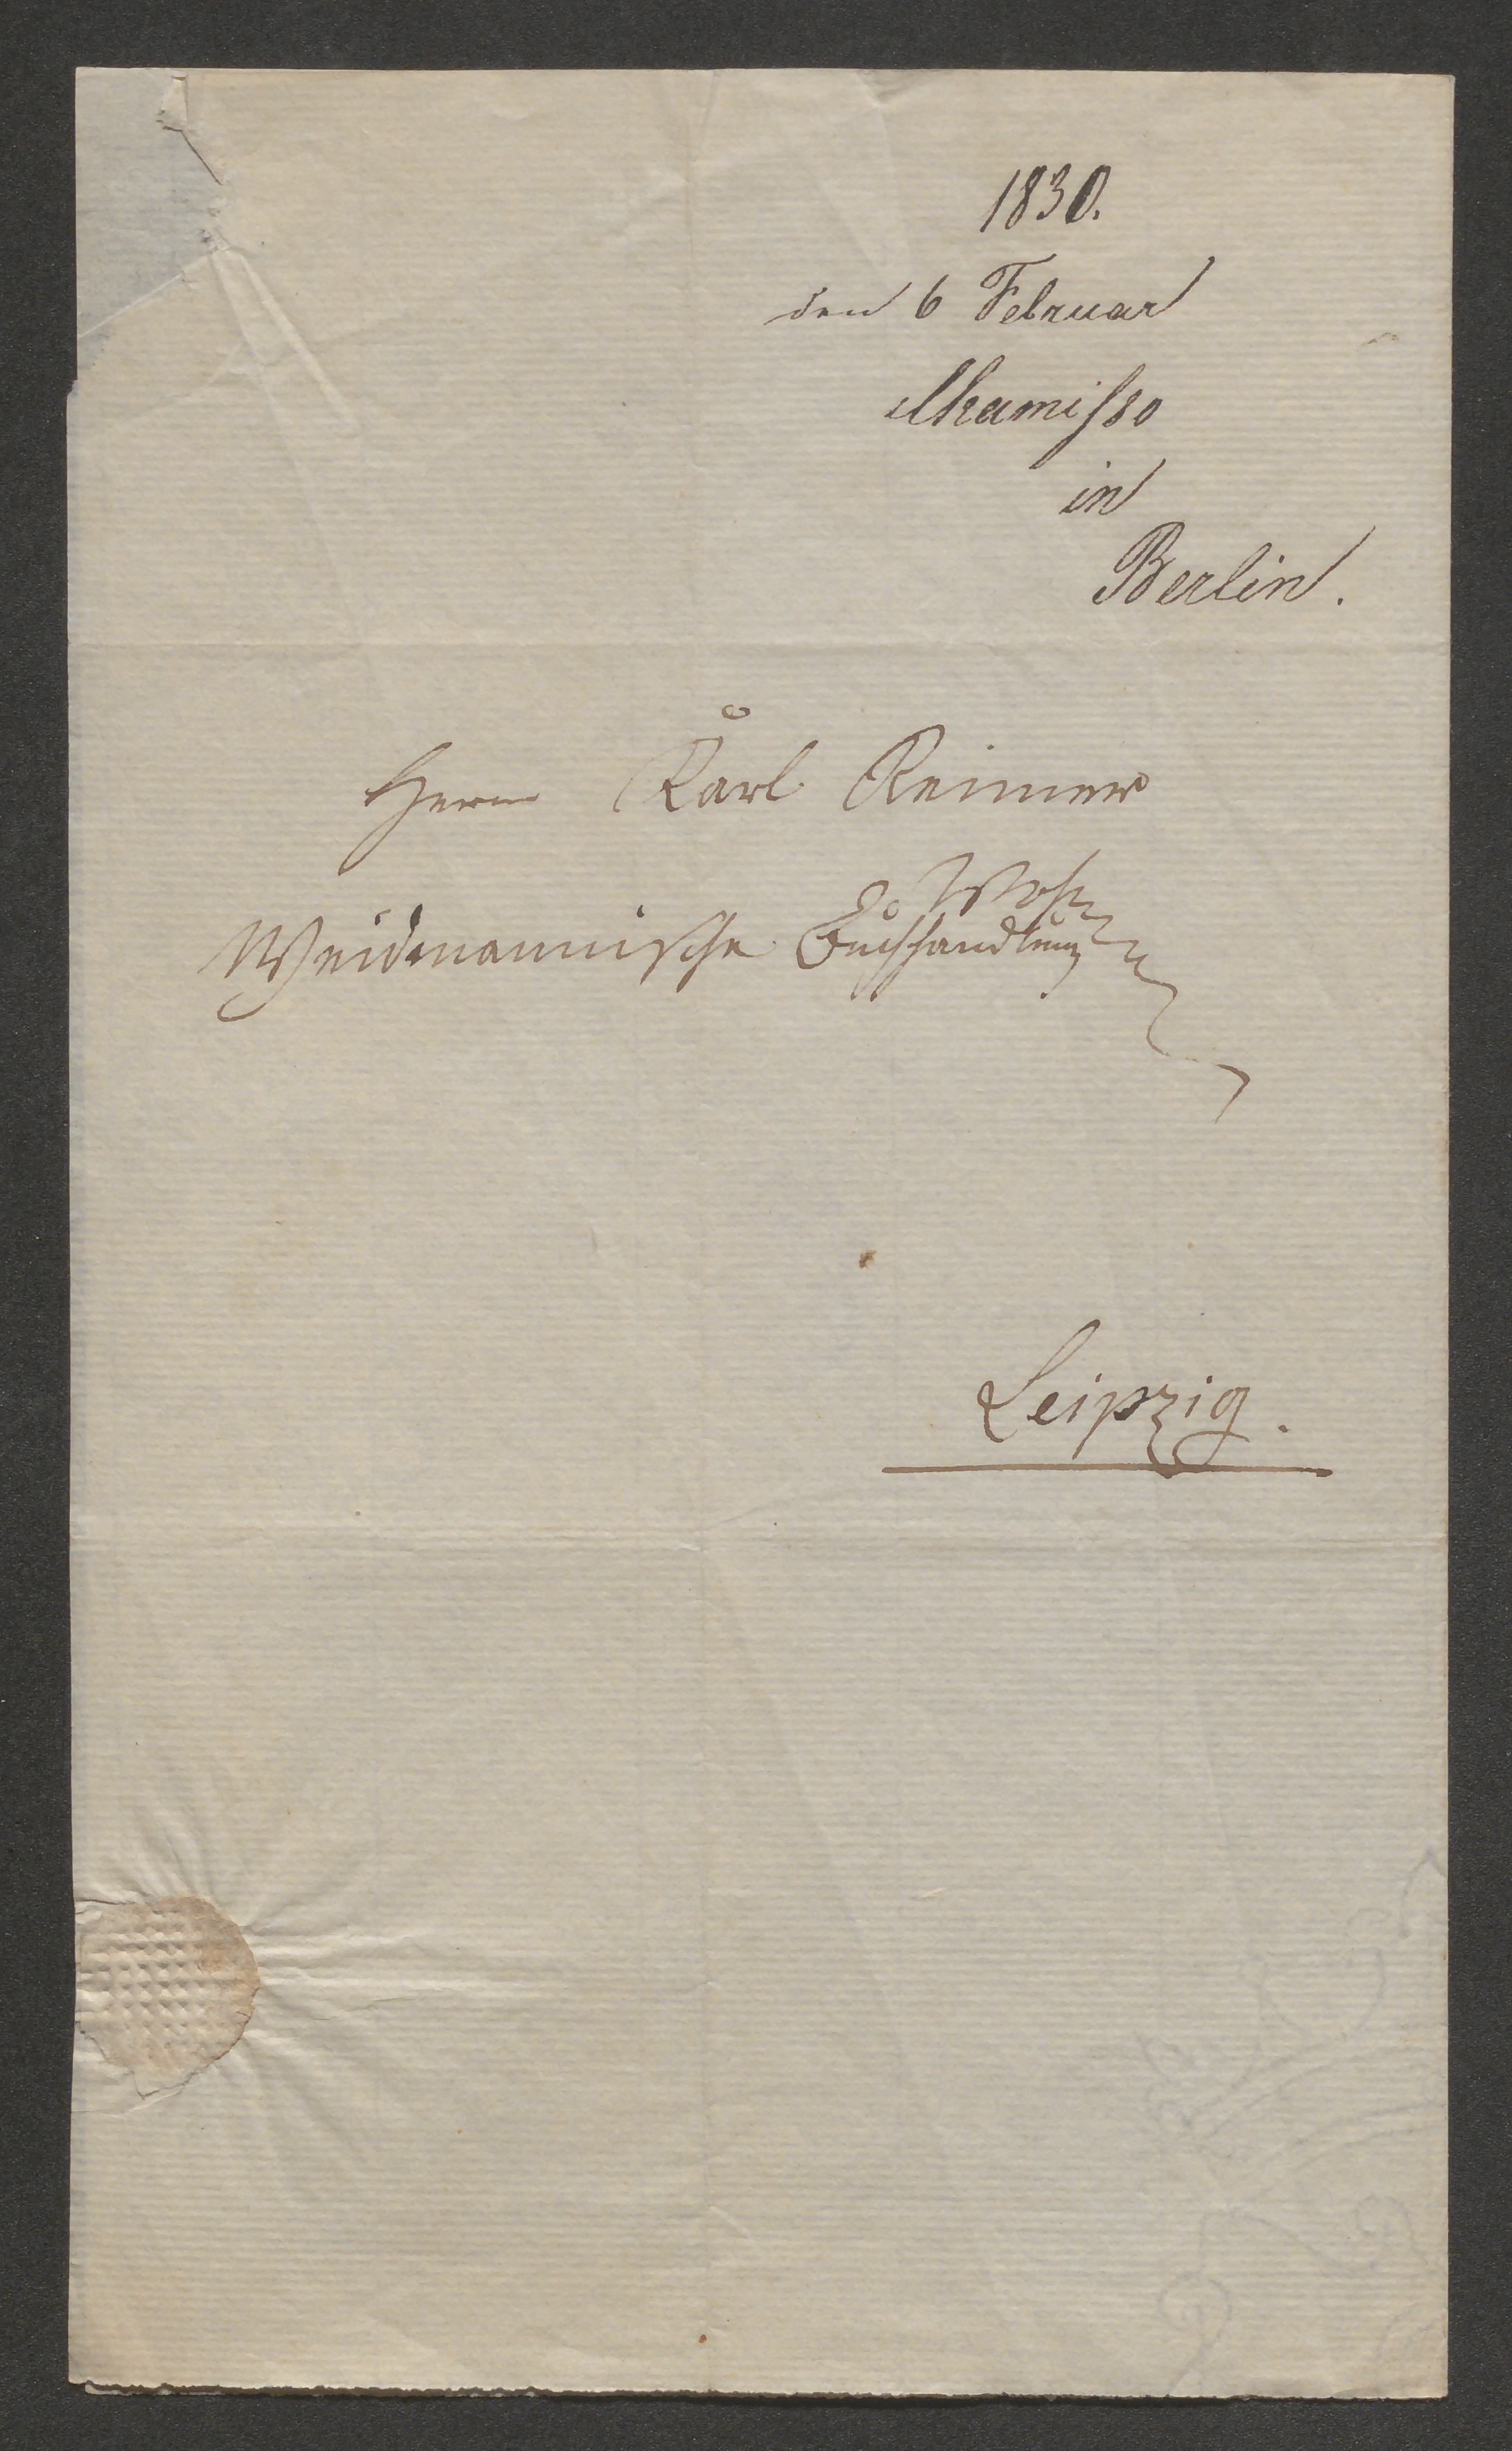 1830.
den 6 Februar
Chamisso
in
Berlin.
Herrn Karl Reimer
Weidmannische Buchhandlung
Leipzig.